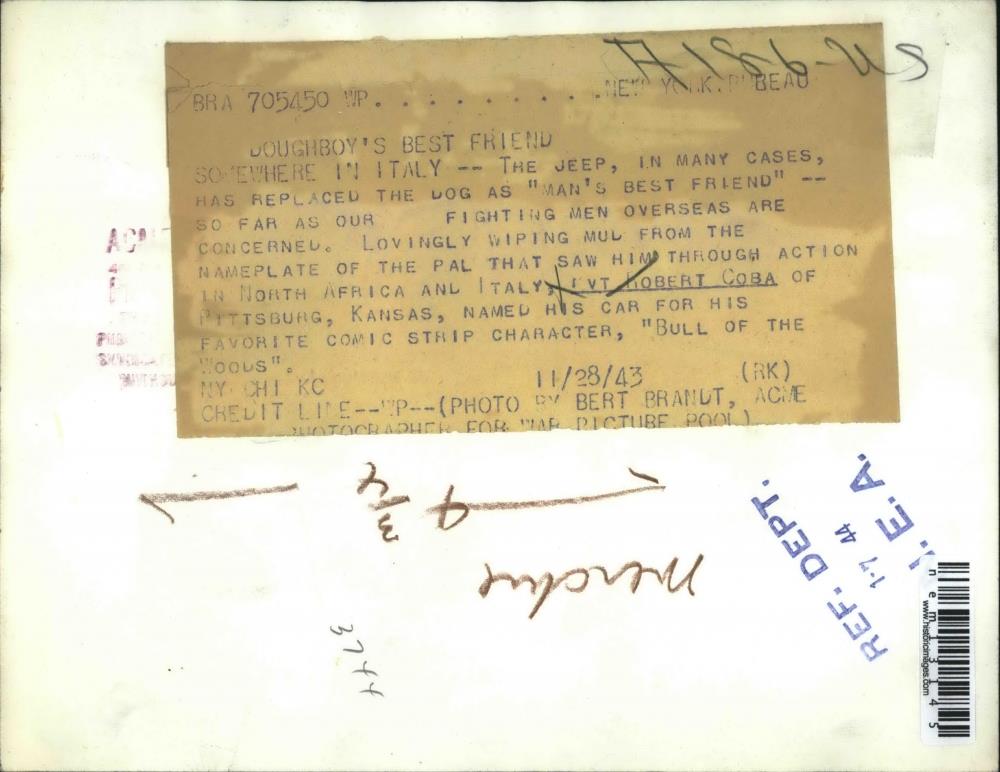 A186-US
BRA 705450 WP. . . . . . . . . . .NEW YORK BUREAU
DOUGHBOY'S BEST FRIEND
SOMEWHERE IN ITALY -- THE JEEP, IN MANY CASES,
HAS REPLACED THE DOG AS "MAN'S BEST FRIEND" --
SO FAR AS OUR FIGHTING MEN OVERSEAS ARE
CONCERNED. LOVINGLY WIPING MUD FROM THE
NAMEPLATE OF THE PAL THAT SAW HIM THROUGH ACTION
IN NORTH AFRICA AND ITALY, PVT ROBERT COBA OF
PITTSBURG, KANSAS, NAMED HIS CAR FOR HIS
FAVORITE COMIC STRIP CHARACTER, "BULL OF THE
WOODS".
NY CHI KC 11/28/43 (RK)
CREDIT LINE--WP--(PHOTO BY BERT BRANDT, ACME
PHOTOGRAPHER FOR WAR PICTURE POOL)
9 3/4
3744
REF. DEPT.
1-7 44
N. E. A.
nem13145
www.historicimages.com